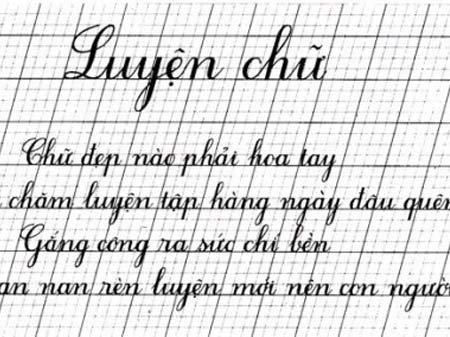 Luyện chữ
Chữ đẹp nào phải hoa tay
chăm luyện tập hàng ngày đâu quên
Gắng công ra sức chí bền
an nan rèn luyện mới nên con người